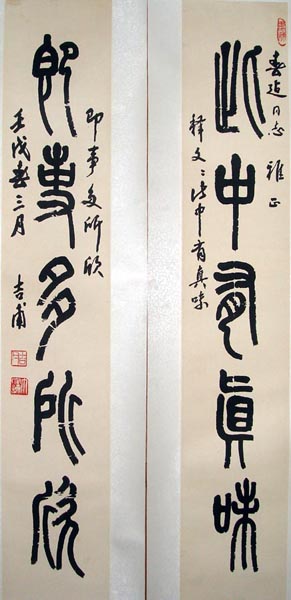 此中有眞味
春同志 雅正
释文：此中有真味
即事多所欣
即事多所欣
壬戌春三月 吉甫